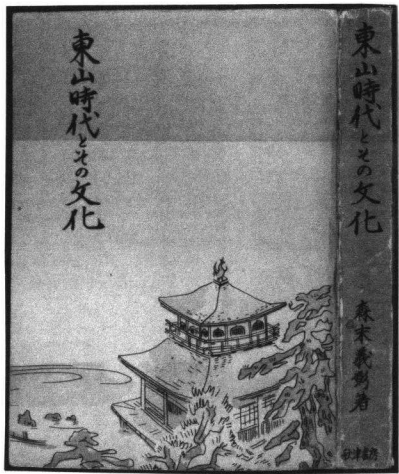 東山時代とその文化
東山時代とその文化
森末義彰著